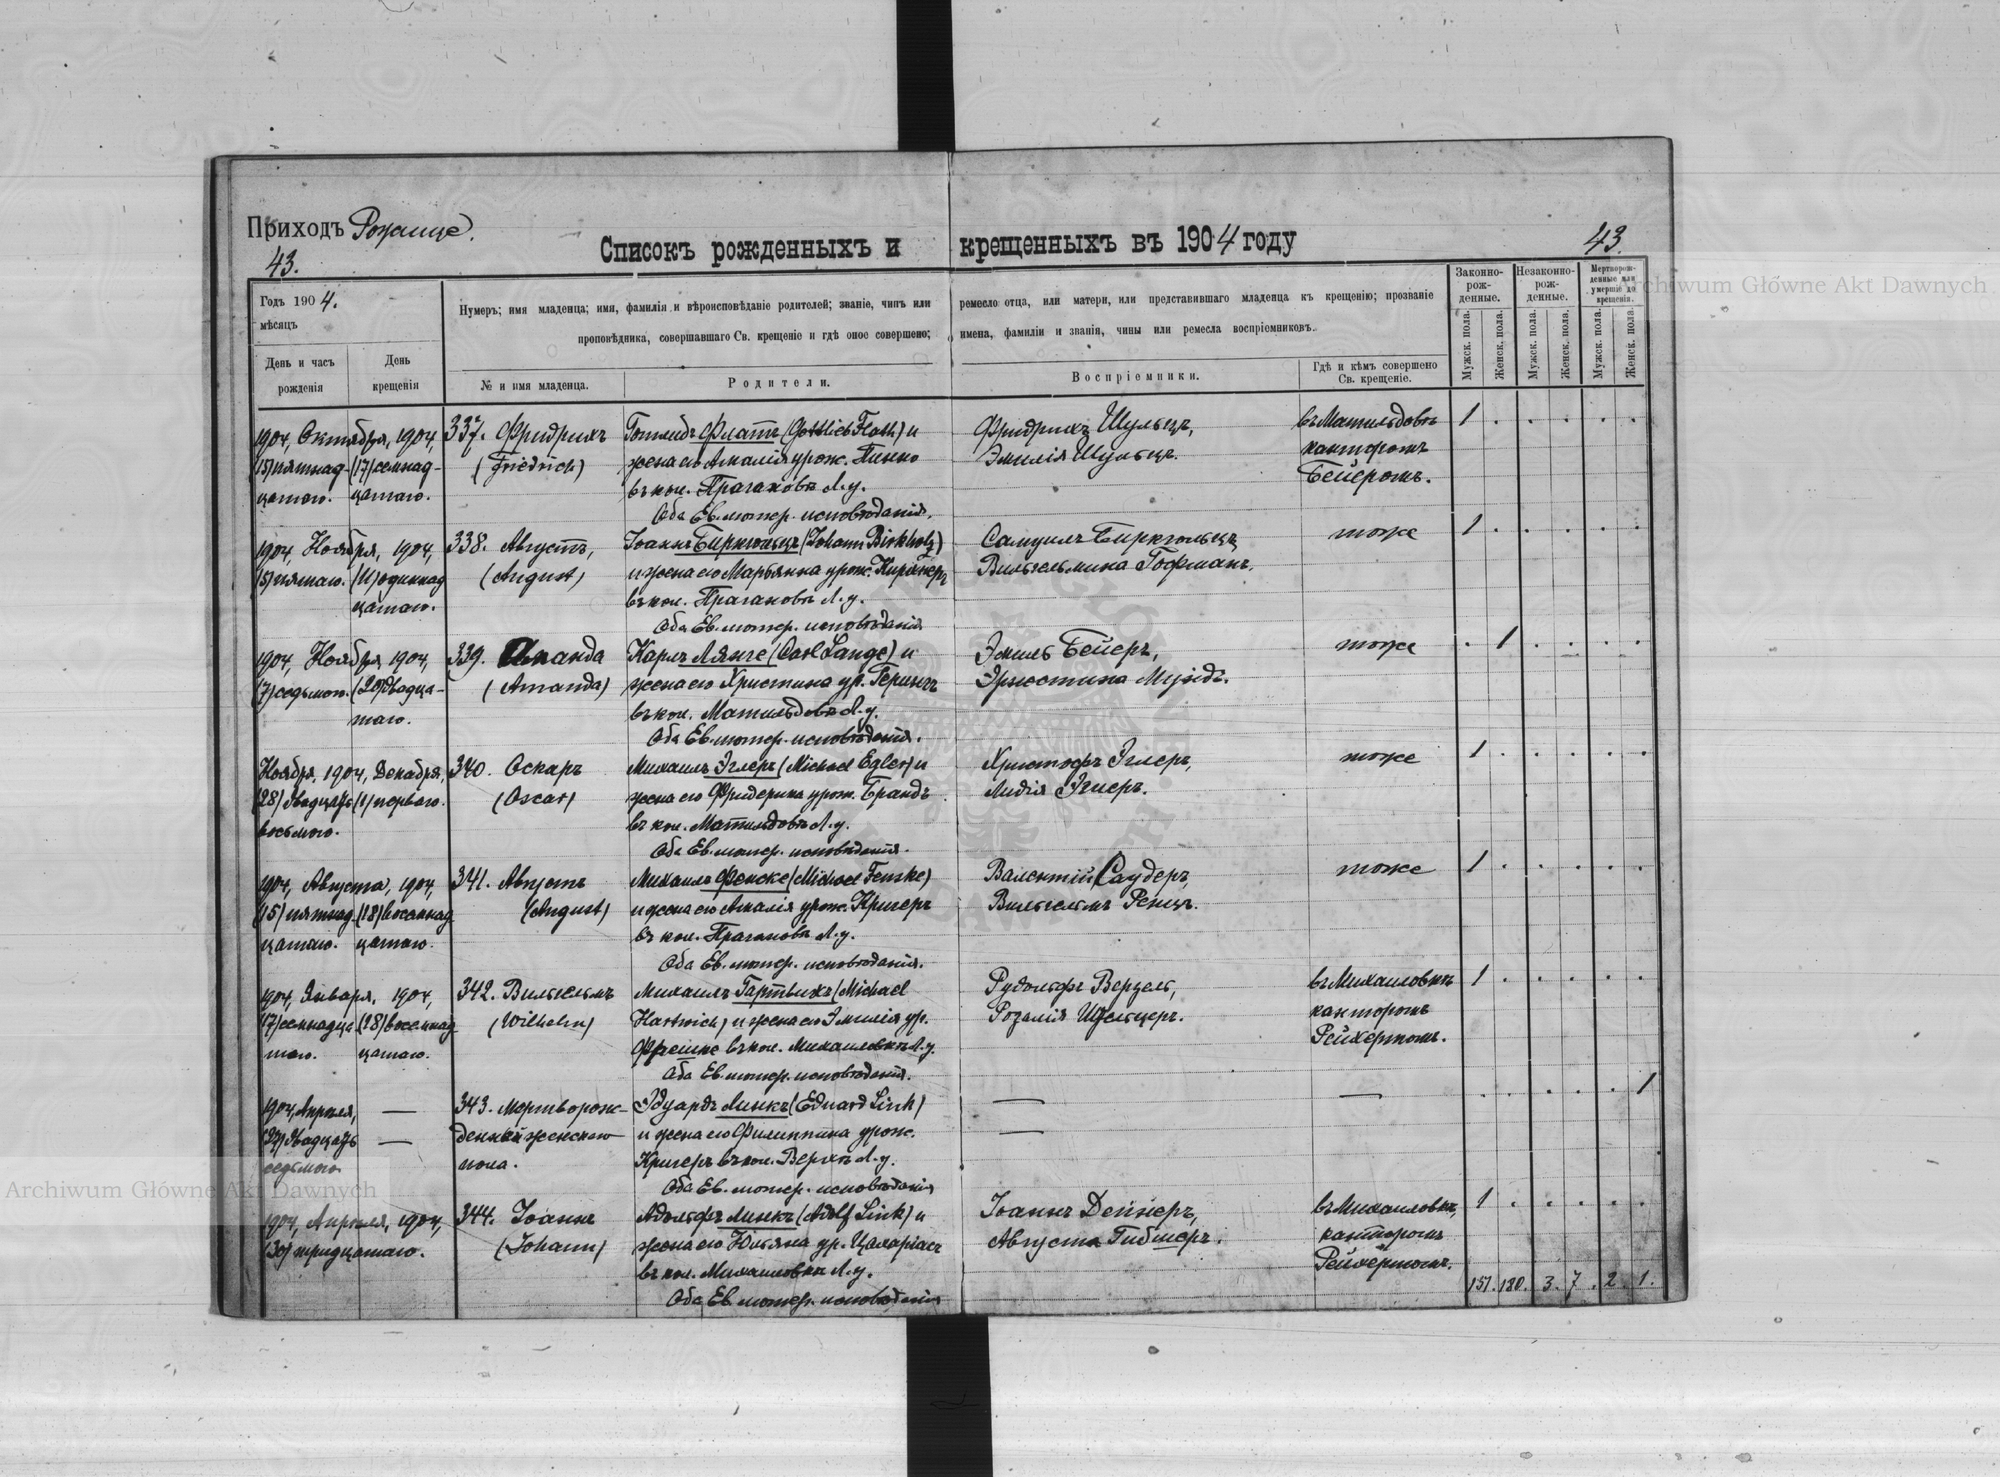 Приходъ Рожище.
43.
Списокъ рожденныхъ и крещенныхъ въ 1904 году
43.
Годъ 1904.
мѣсяцъ
День и часъ рожденія
День крещенія
Нумеръ; имя младенца; имя, фамилія и вѣроисповѣданіе родителей; званіе, чинъ или ремесло отца, или матери, или представившаго младенца къ крещенію; прозваніе
проповѣдника, совершавшаго Св. крещеніе и гдѣ оное совершено; имена, фамиліи и званія, чины или ремесла воспріемниковъ.
№ и имя младенца.
Родители.
Воспріемники.
Гдѣ и кѣмъ совершено Св. крещеніе.
Законно-рож-денные.
Незаконно-рож-денные.
Мертворож-денные или умершіе до крещенія.
Мужск. пола.
Женск. пола.
Мужск. пола.
Женск. пола.
Мужск. пола.
Женск. пола.
1904, Октября, 1904, 337. Фридрихъ Готлибъ Флатъ (Gottlieb Flath) и Фридрихъ Шульцъ, въ Матильдовкѣ 1
(15) пятнад- (17) семнад- (Friedrich) жена его Амалія урож. Эмилія Шульцъ. канторомъ
цатаго. цатаго. въ кол. Прагановкѣ Л. у. Бейеромъ.
Оба Ев. лютер. исповѣданія.
1904, Ноября, 1904, 338. Августъ, Іоаннъ Биркгольцъ (Johann Birkholz) Самуилъ Биркгольцъ, тоже 1
(5) пятаго. (11) одиннад (August) и жена его Марьянна урож. Вильгельмина Гофманъ.
цатаго. въ кол. Прагановкѣ Л. у.
Оба Ев. лютер. исповѣданія
1904, Ноября 1904, 339. Аманда Карлъ Лянге (Carl Lange) и Эмиль Бейеръ, тоже 1
(7) седьмого. (20) двадца- (Amanda) жена его Христина ур. Герингъ Эрнстина
таго. въ кол. Матильдовкѣ Л. у.
Оба Ев. лютер. исповѣданія.
Ноября, 1904, Декабря, 340. Оскаръ Михаилъ Эглеръ (Michael Egler) и Христофъ Эглеръ, тоже 1
(28) двадцать (1) перваго. (Oscar) жена его Фридерика урож. Брандъ Лидія Эглеръ.
восьмого. въ кол. Матильдовкѣ Л. у.
Оба Ев. лютер. исповѣданія.
1904, Августа, 1904, 341. Августъ Михаилъ Фенске (Michael Fenske) Валентій Саудеръ, тоже 1
(15) пятнад (18) восемнад (August) и жена его Амалія урож. Кригеръ Вильгельмъ Ренцъ.
цатаго. цатаго. въ кол. Прагановкѣ Л. у.
Оба Ев. лютер. исповѣданія.
1904, Января, 1904, 342. Вильгельмъ Михаилъ Гартвихъ (Michael Рудольфъ Верцель, въ Михаиловкѣ 1
(17) семнадца (28) восемнад (Wilhelm) Hartwich) и жена его Эмилія ур. Розалія Шельцеръ. канторомъ
таго. цатаго. въ кол. Михаиловкѣ Л. у. Рейхертомъ.
Оба Ев. лютер. исповѣданія.
1904, Апрѣля, — 343. Мертворож- Эдуардъ Линкъ (Eduard Link) — — 1
(27) двадцать — денный женскаго и жена его Филиппина урож. —
седьмого пола. Кригеръ въ кол. Верхѣ Л. у.
Оба Ев. лютер. исповѣданія
1904, Апрѣля, 1904, 344. Іоаннъ Адольфъ Линкъ (Adolf Link) и Іоаннъ Дейнеръ, въ Михаиловкѣ, 1
(30) тридцатаго. (Johann) жена его Юльяна ур. Цахаріасъ Августа канторомъ
въ кол. Михаиловкѣ Л. у. Рейхертомъ.
Оба Ев. лютер. исповѣданія
151. 180. 3. 7. 2. 1.
Archiwum Główne Akt Dawnych
Archiwum Główne Akt Dawnych